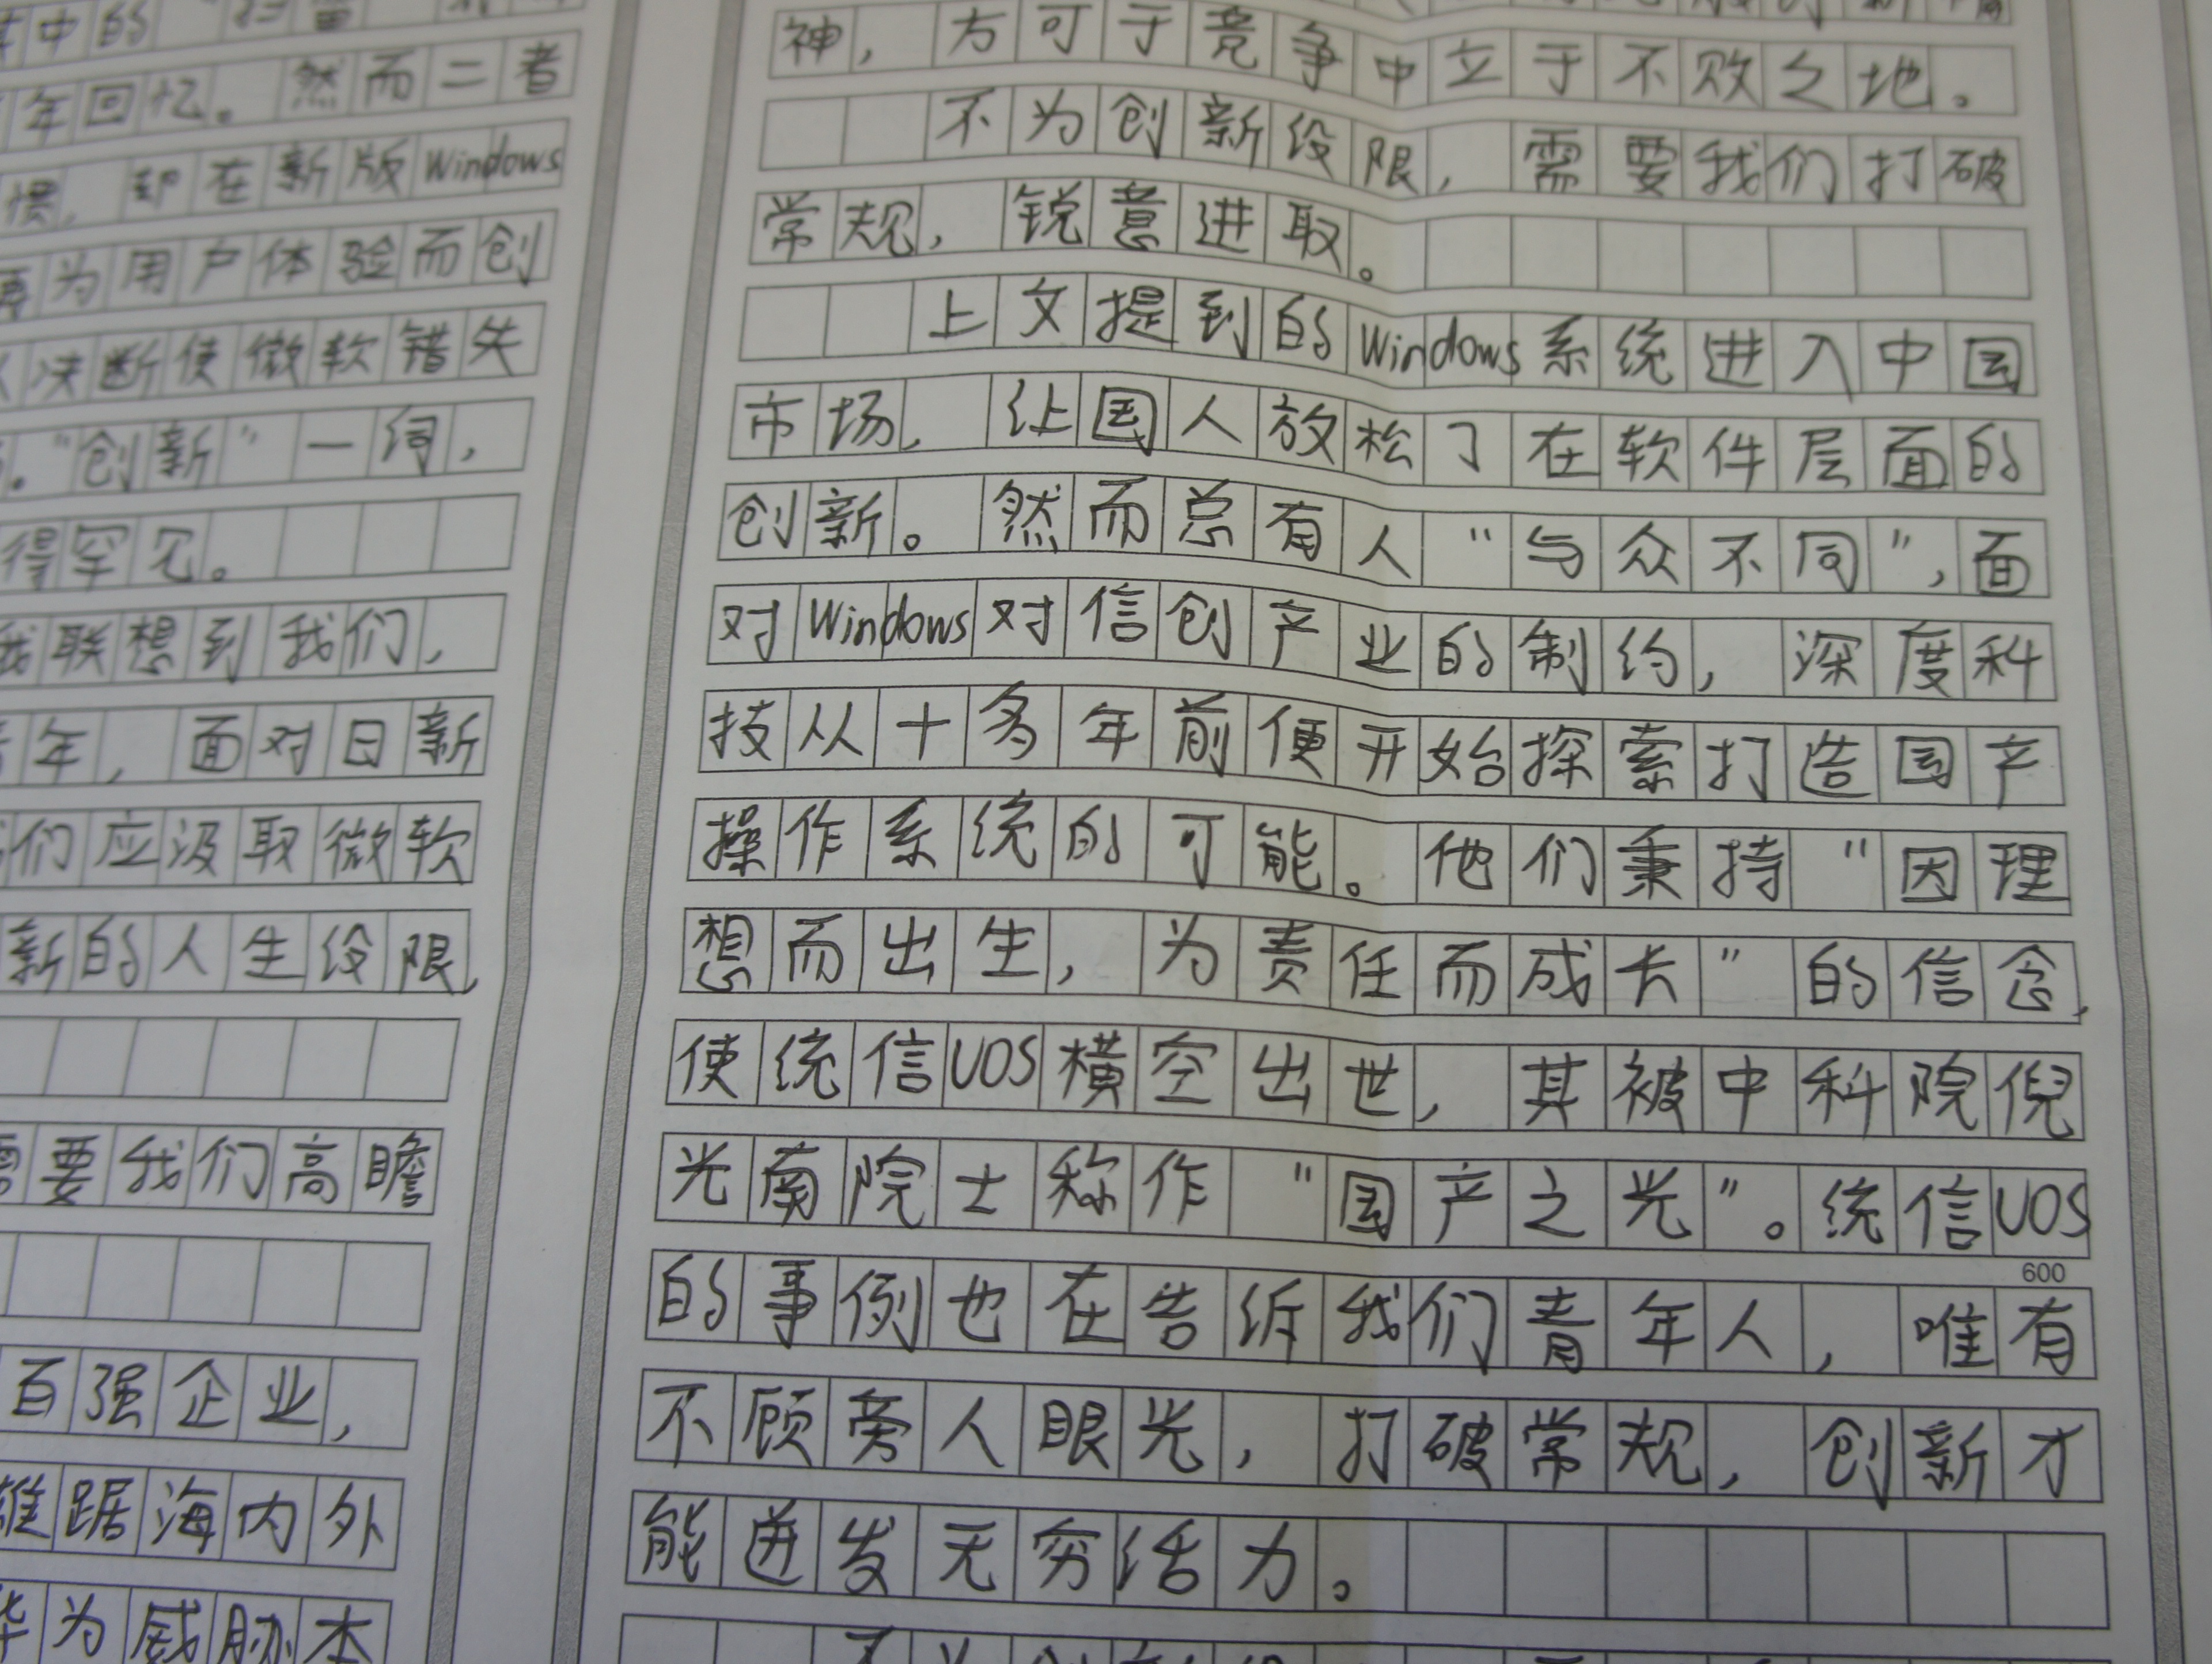 其中的
年回忆。然而二者
惯，却在新版Windows
再为用户体验而创
决断使微软错失
。“创新”一词，
得罕见。
我联想到我们，
青年，面对日新
们应汲取微软
新的人生设限，
需要我们高瞻
百强企业，
雄踞海内外
华为威胁本
神，方可于竞争中立于不败之地。
不为创新设限，需要我们打破
常规，锐意进取。
上文提到的Windows系统进入中国
市场，让国人放松了在软件层面的
创新。然而总有人“与众不同”，面
对Windows对信创产业的制约，深度科
技从十多年前便开始探索打造国产
操作系统的可能。他们秉持“因理
想而出生，为责任而成长”的信念，
使统信UOS横空出世，其被中科院倪
光南院士称作“国产之光”。统信UOS
600
的事例也在告诉我们青年人，唯有
不顾旁人眼光，打破常规，创新才
能迸发无穷活力。
不为创新设